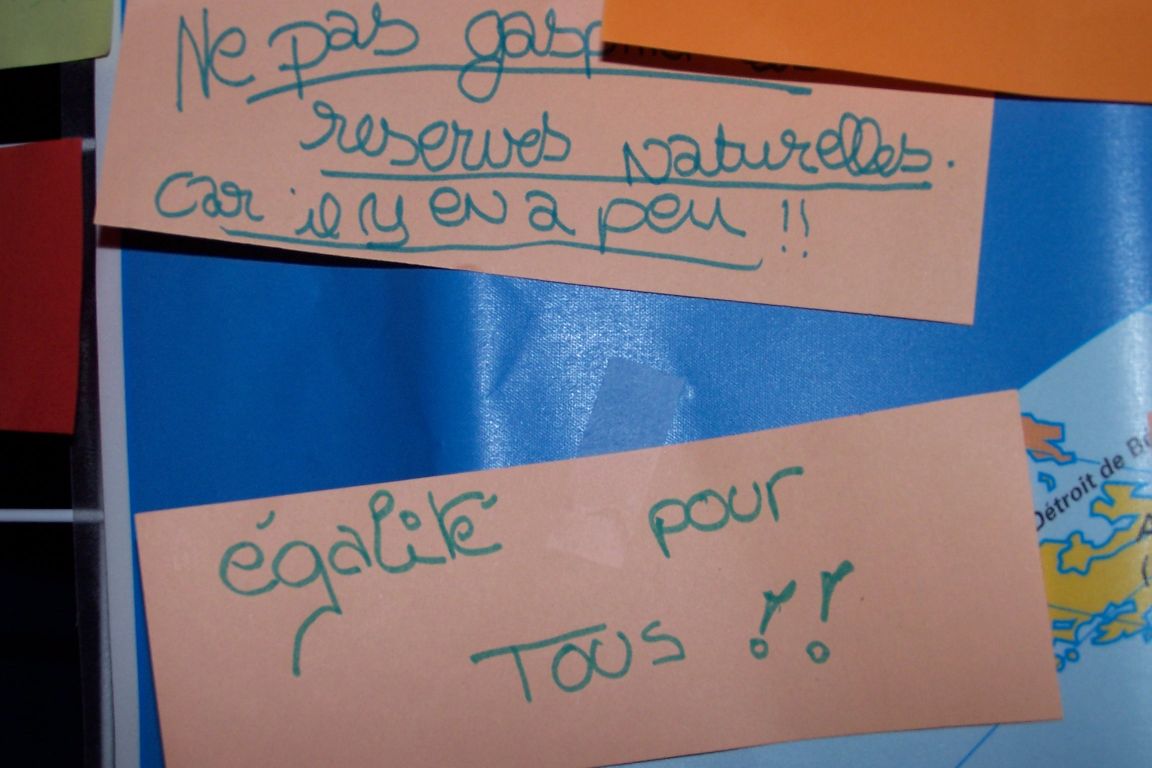 Ne pas gasp
reserves naturelles.
Car il y en a peu !!
égalité pour
TOUS !!
Détroit de Be